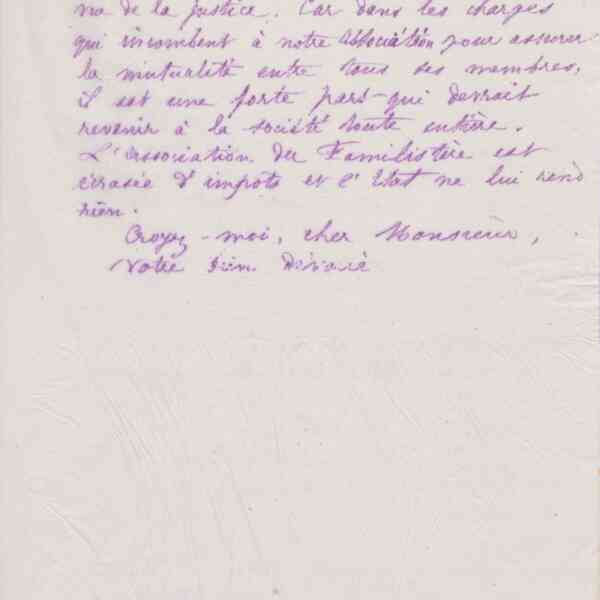 va de la justice. Car dans les charges
qui incombent à notre association pour assurer
la mutualité entre tous ses membres,
il est une forte part qui devrait
revenir à la société toute entière.
L'association du Familistère est
écrasée d'impots et l'Etat ne lui rend
rien.
Croyez-moi, cher Monsieur,
Votre bien dévoué